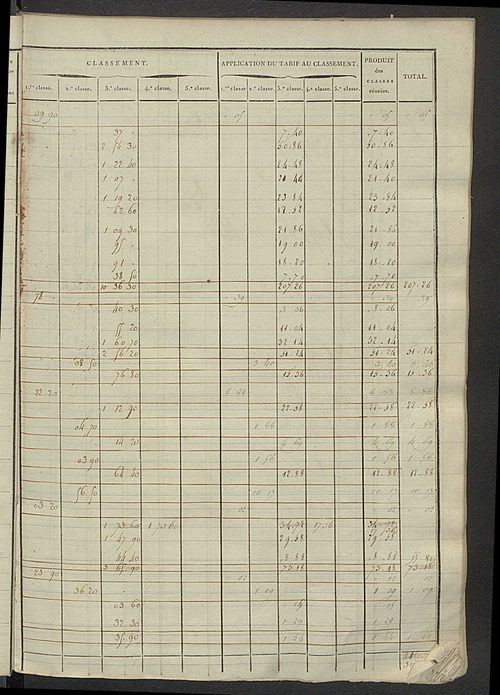 CLASSEMENT. APPLICATION DU TARIF AU CLASSEMENT. PRODUIT des CLASSES réunies. TOTAL.
1.re classe. 2.e classe. 3.e classe. 4.e classe. 5.e classe. 1.re classe 2.e classe. 3.e classe. 4.e classe. 5.e classe.
09 90 05 05
37 7.40 7.40
2 54 30 50.86 50.86
1 22 40 24.48 24.48
1 07 21.40
1 19 20 23.84 23.84
62 60 12.52 12.52
1 09 30 21.86 21.86
95 19.00 19.00
91 18.20 18.20
38 50 7.70 7.70
10 36 30 207.26 207.26 207.26
78 39 39 39
40 30 8.06 8.06
55 20 11.04 11.04
1 60 70 32.14 32.14
2 56 20 51.24 51.24 51.24
08 50 3.40 3.40 3.40
76 80 15.36 15.36 15.36
22 20 6.88 6.88
1 12 90 22.58 22.58 22.58
04 70 1.88 1.88 1.88
14 20 4.69
03 90 1.56 1.56 1.56
64 40 12.88 12.88 12.88
56 50 10.17 10.17 10.17
03 20 02 02 02
1 73 60 1 73 60 34.72 17.36 34.72
17.36
1 47 90 29.58 29.58
44 40 8.88 8.88
3 65 90 73.18 73.18 73.18
23 90 12 12 12
36 20 1.09 1.09 1.09
03 60 14
32 30 1.29 1.29
35 90 1.44 1.44 1.44